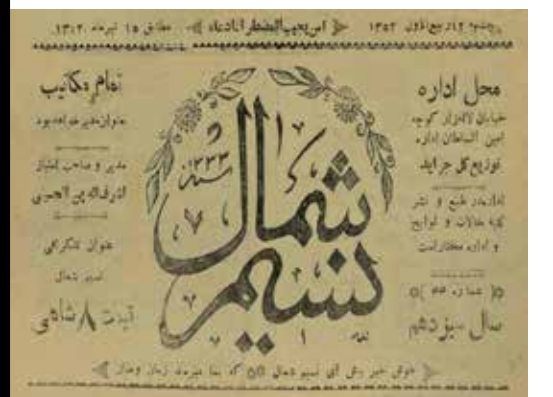 پنجشنبه ۱۲ ربیع الاول ۱۳۵۲ امن یجیب المضطر اذا دعاه مطابق ۱۵ تیرماه ۱۳۱۲
محل اداره
خیابان لاله‌زار کوچه
امین السلطان اداره
توزیع کل جراید
اداره در طبع و نشر
کلیه مقالات و لوایح
و اداره مختار است
شماره ۵۵
سال سیزدهم
نسیم شمال
سنه ۱۳۳۳
تمام مکاتیب
بعنوان مدیر خواهد بود
مدیر و صاحب امتیاز
اشرف الدین الحسینی
عنوان تلگرافی
نسیم شمال
قیمت ۸ شاهی
خوش خبر باش ای نسیم شمال که بما میرسد زمان وصال